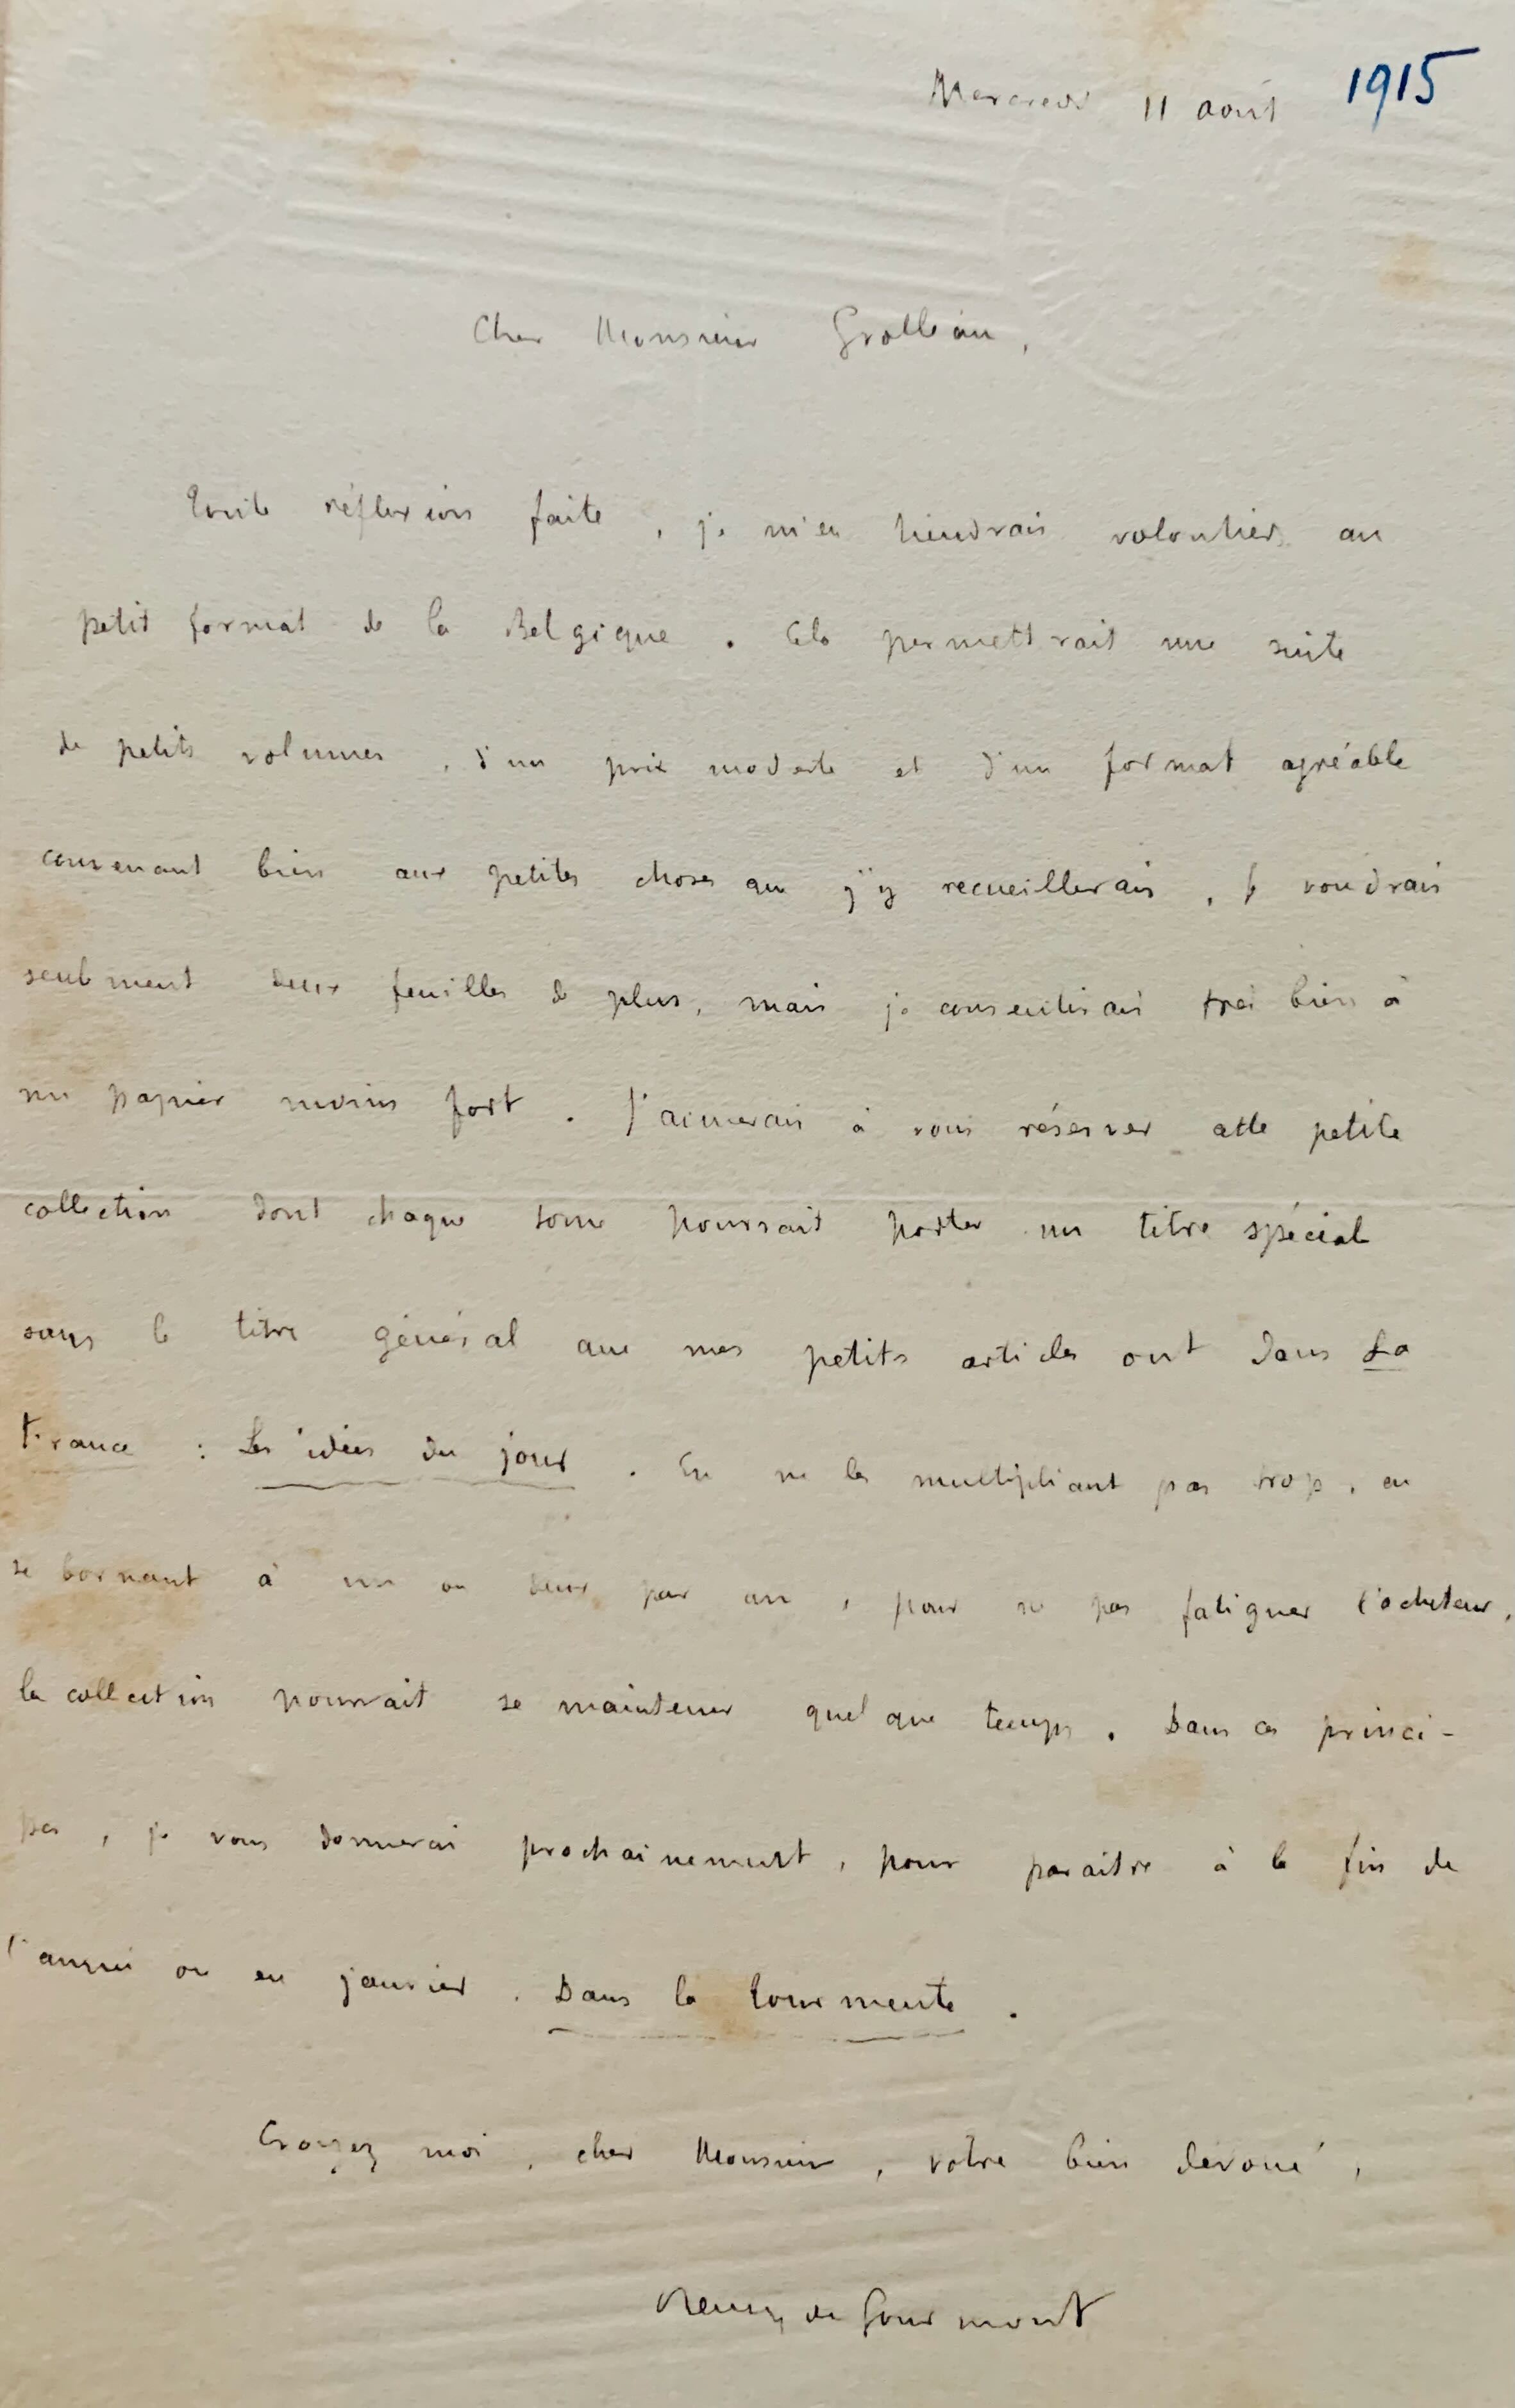 Mercredi 11 août 1915
Cher Monsieur Grolleau,
Toute réflexion faite, je m'en tiendrais volontiers au
petit format de la Belgique. Cela permettrait une suite
de petits volumes, d'un prix modeste et d'un format agréable
convenant bien aux petites choses que j'y recueillerais. Je voudrais
seulement deux feuilles de plus, mais je consentirais très bien à
un papier moins fort. J'aimerais à vous réserver cette petite
collection dont chaque tome pourrait porter un titre spécial
sous le titre général que mes petits articles ont dans La
France : Les idées du jour. En ne les multipliant pas trop, en
se bornant à un ou deux par an, pour ne pas fatiguer l'acheteur,
la collection pourrait se maintenir quelque temps. Dans ces princi-
pes, je vous donnerai prochainement, pour paraitre à la fin de
l'année ou en janvier, Dans la tourmente.
Croyez moi, cher Monsieur, votre bien dévoué,
Remy de Gourmont